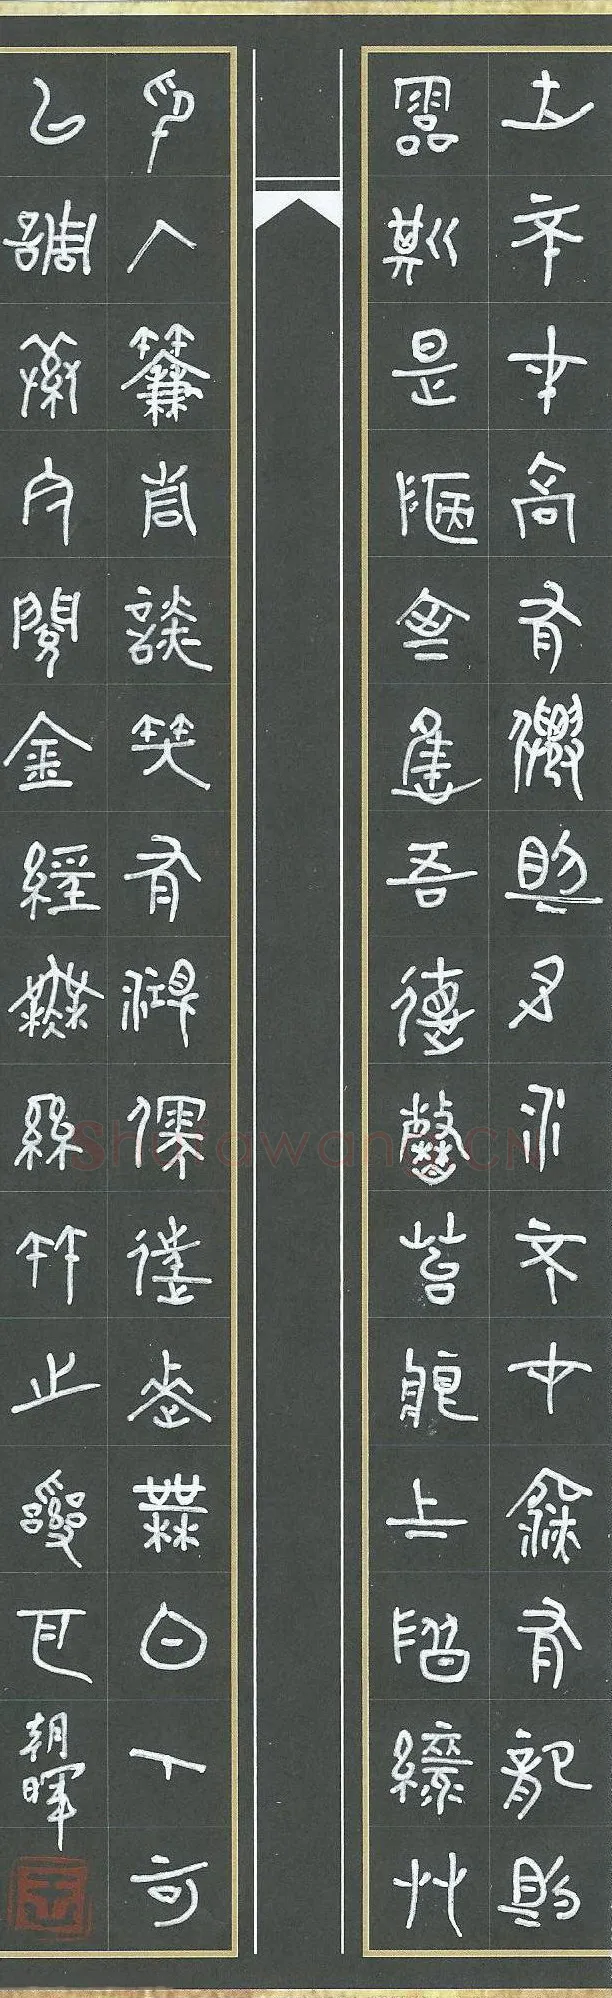 山不在高有僊則名水不在深有龍則
靈斯是陋室惟吾德馨苔痕上階綠艸
色入簾青談笑有鴻儒往來無白丁可
以調素琴閱金經無絲竹之亂耳 朝暉
Shufawang.CN